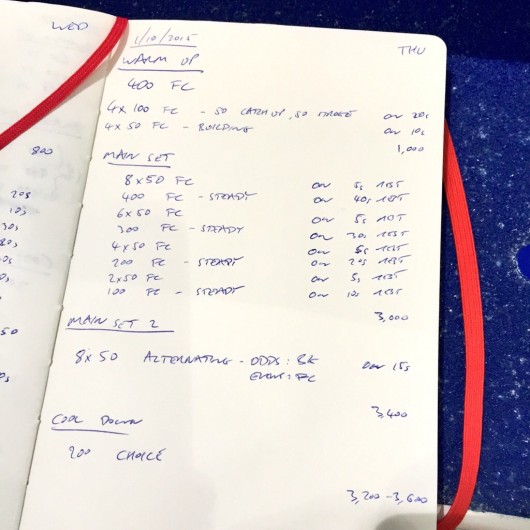 WED
800
20s
10s
30s
80s
10s
50
1/10/2015
THU
WARM UP
400 FC
4x100 FC - 50 CATCH UP, 50 STROKE on 20s
4x50 FC - BUILDING on 10s
1,000
MAIN SET
8x50 FC on 5s REST
400 FC - STEADY on 40s REST
6x50 FC on 5s REST
300 FC - STEADY on 30s REST
4x50 FC on 5s REST
200 FC - STEADY on 20s REST
2x50 FC on 5s REST
100 FC - STEADY on 10s REST
3,000
MAIN SET 2
8x50 ALTERNATING - ODDS: BK on 15s
EVENS: FC
3,400
COOL DOWN
200 CHOICE
3,200-3,600